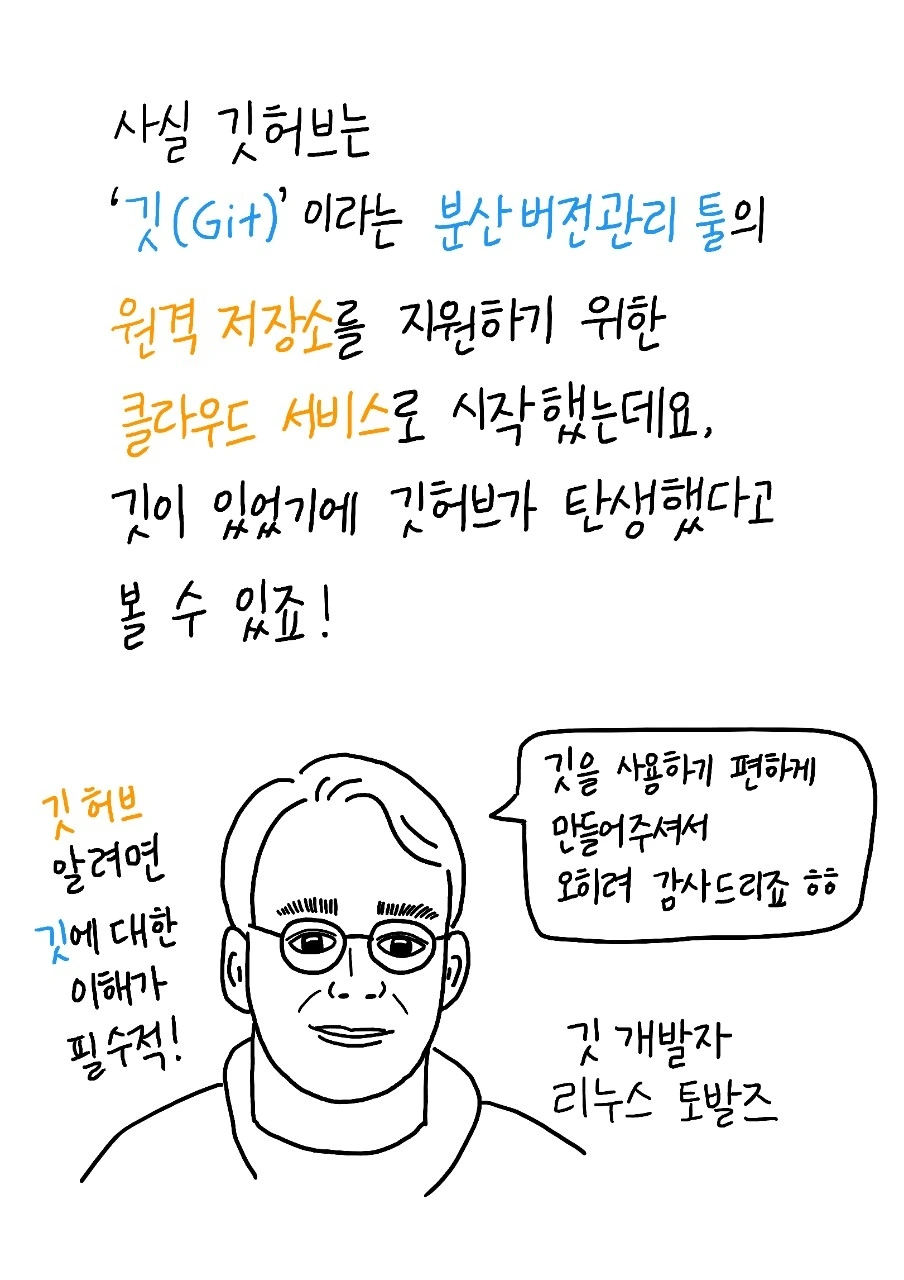 사실 깃허브는
'깃(Git)' 이라는 분산버전관리 툴의
원격 저장소를 지원하기 위한
클라우드 서비스로 시작했는데요,
깃이 있었기에 깃허브가 탄생했다고
볼 수 있죠!
깃을 사용하기 편하게
만들어주셔서
오히려 감사드리죠 ㅎㅎ
깃허브
알려면
깃에 대한
이해가
필수적!
깃 개발자
리누스 토발즈